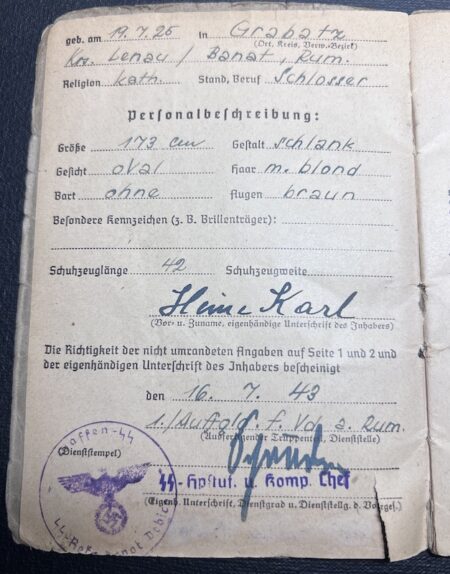 geb. am 19.7.25 in Grabatz
(Ort, Kreis, Verw.-Bezirk)
Krs. Lenau / Banat, Rum.
Religion kath. Stand, Beruf Schlosser
Personalbeschreibung:
Größe 173 cm Gestalt schlank
Gesicht oval Haar m. blond
Bart ohne Augen braun
Besondere Kennzeichen (z. B. Brillenträger):
Schuhzeuglänge 42 Schuhzeugweite
Heine Karl
(Vor- u. Zuname, eigenhändige Unterschrift des Inhabers)
Die Richtigkeit der nicht umrandeten Angaben auf Seite 1 und 2 und
der eigenhändigen Unterschrift des Inhabers bescheinigt
den 16. 7. 43
1./Auffgld. f. Vd. a. Rum.
(Ausfertigender Truppenteil, Dienststelle)
Waffen-SS
(Dienststempel)
SS-Hpstuf. u. Komp. Chef
(Eigenh. Unterschrift, Dienstgrad u. Dienststellg. d. Vorges.)